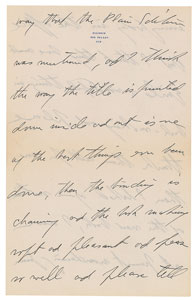 way that the Plain Edition
was mentioned, and I think
the way the title is printed
down inside and out is one
of the best things ever been
done, then the binding is
charming and the book nothing
soft and pleasant and
so well and please tell